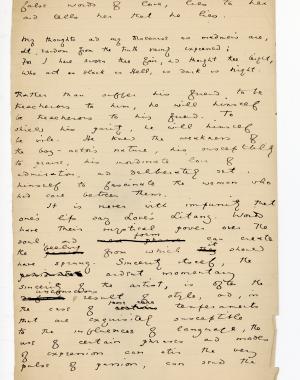 false words of love, lies to her
and tells her that he lies.
My thoughts and my discourse as madmen's are,
At random from the truth vainly expressed;
For I have sworn thee fair, and thought thee bright,
Who art as black as Hell, as dark as Night.
Rather than suffer his friend to be
treacherous to him, he will himself
be treacherous to his friend. To
shield his purity, he will himself
be vile. He knew the weakness of
the boy-actor's nature, his susceptibility
to praise, his inordinate love of
admiration, and deliberately set
himself to fascinate the woman who
had come between them.
It is never with impunity that
one's lips say Love's Litany. Words
have their mystical power over the
soul, and form can create
the feeling from which it should
have sprung. Sincerity itself, the
ardent, momentary
sincerity of the artist, is often the
unconscious result of style, and, in
the case of those rare temperaments
that are exquisitely susceptible
to the influences of language, the
use of certain phrases and modes
of expression can stir the very
pulse of passion, can send the